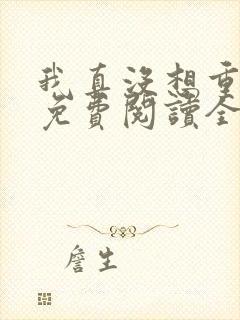 我真没想重
免費閱讀全
詹生